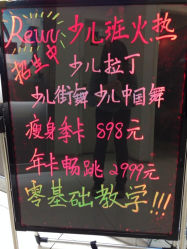 Revv 少儿班火热
招生中
少儿拉丁
少儿街舞 少儿中国舞
瘦身季卡 898元
年卡畅跳 2999元
零基础教学!!!